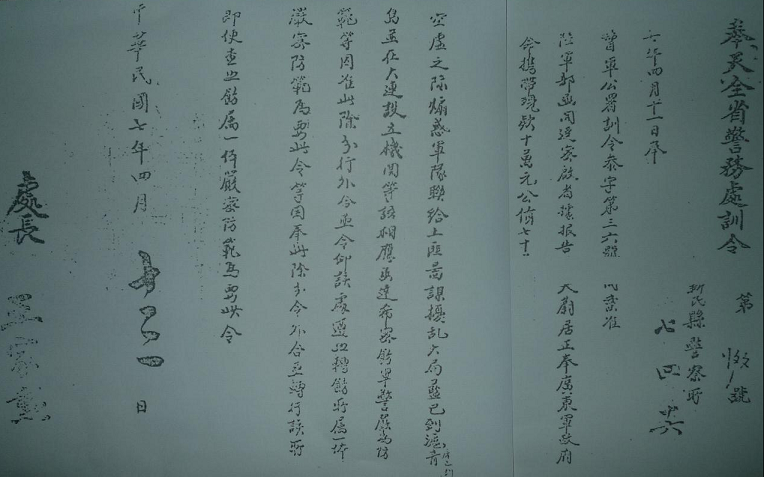 奉天全省警務處訓令　第　號
新民縣警察所
七年四月十二日奉
督軍公署訓令叅字第三六號　以案准
陸軍部函開逕密啟者據報告　居正奉廣東軍政府
命携帶現欵十萬元公債七十
空虛之際煽惑軍隊聯給土匪冀謀擾乱大局並已到滬青
島並在大連設立機関等語相應函達希密飭軍警嚴為防
範等因准此除分行外合亟令仰該處遵照轉飭所屬一体
嚴密防範為要此令等因奉此除分令外合亟轉行該所
即便查照飭屬一体嚴密防範為要此令
中華民國七年四月　日
處長　王家勳